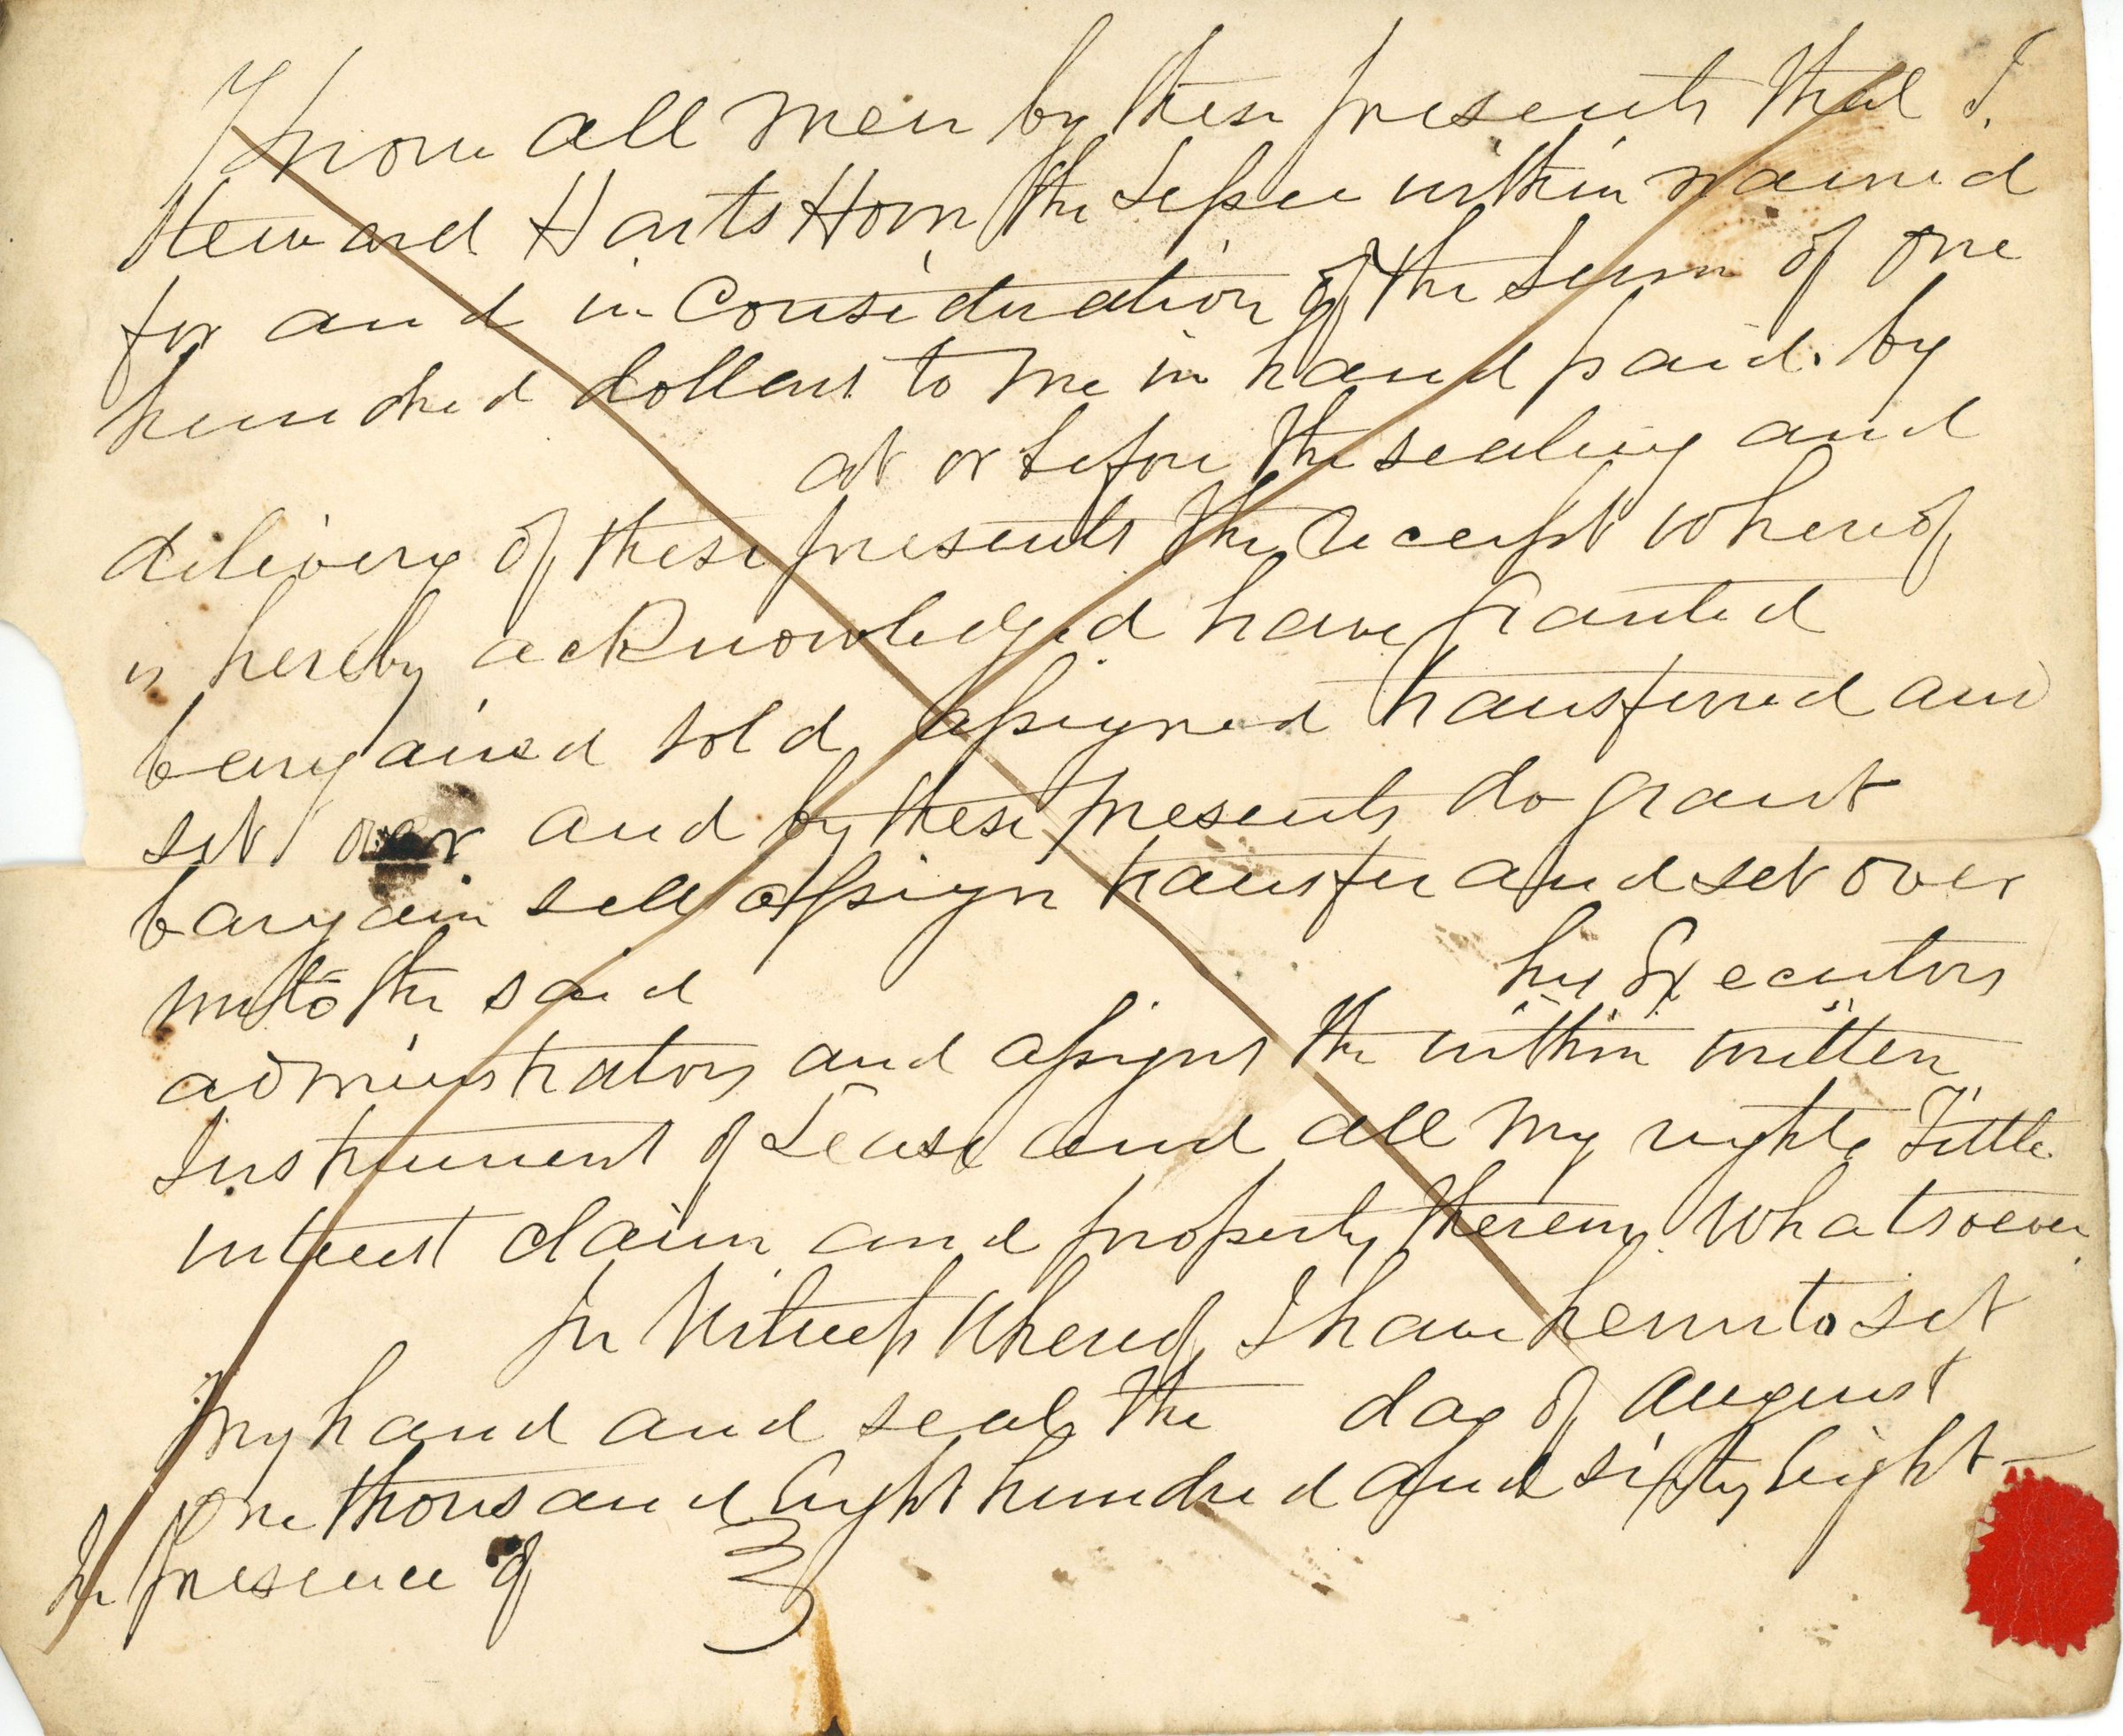 Know all men by these presents that I.
Steward HartsHorn the Lessee within named
for and in Consideration of the Sum of one
hundred dollars to me in hand paid. by
at or before the sealing and
delivery of these presents the Receipt whereof
is hereby acknowledged have granted
bargained sold, assigned transferred and
set over and by these presents do grant
bargain sell assign transfer and set over
unto the said his Executors
administrators and assigns the within written
Instrument of Lease and all my righte Tittle
interest claim and property therein, Whatsoever
In Witness Whereof I have hereunto set
my hand and seal the day of August
One thousand Eight hundred and sixty Eight —
In Presence of